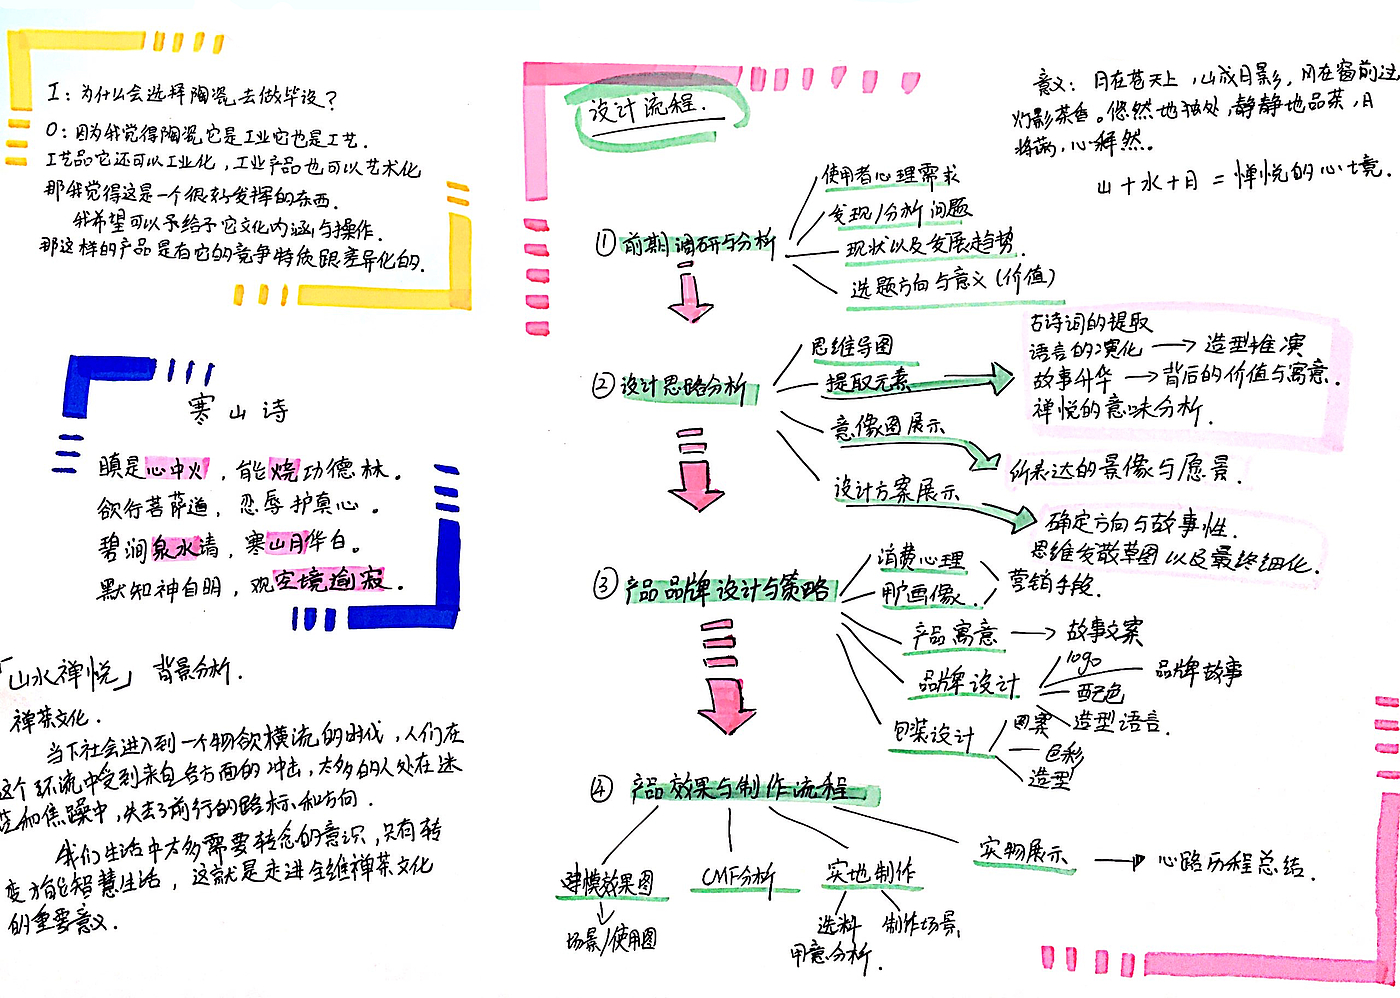 I：为什么会选择陶瓷去做毕设？
O：因为我觉得陶瓷它是工业它也是工艺.
工艺品它还可以工业化，工业产品也可以艺术化
那我觉得这是一个很好发挥的东西.
我希望可以予给予它文化内涵与操作.
那这样的产品是有它的竞争特质跟差异化的.
寒山诗
瞋是心中火，能烧功德林。
欲行菩萨道，忍辱护真心。
碧涧泉水清，寒山月华白。
默知神自明，观空境逾寂.
「山水禅悦」 背景分析.
禅茶文化.
当下社会进入到一个物欲横流的时代，人们在
这个环流中受到来自各方面的冲击，太多的人处在迷
茫和焦躁中，失去了前行的路标和方向.
我们生活中太多需要转念的意识，只有转
变方能智慧生活，这就是走进全维禅茶文化
的重要意义.
设计流程.
① 前期调研与分析
使用者心理需求
发现/分析问题
现状以及发展趋势.
选题方向与意义（价值）
② 设计思路分析
思维导图
提取元素
古诗词的提取
语言的演化 → 造型推演
故事升华 → 背后的价值与寓意.
禅悦的意味分析.
意像图展示
所表达的景像与愿景.
设计方案展示
确定方向与故事性.
思维发散草图以及最终细化.
③ 产品品牌设计与策略
消费心理
用户画像.
营销手段.
产品寓意 → 故事文案
品牌设计
logo
品牌故事
配色
造型语言.
包装设计
图案
色彩
造型
④ 产品效果与制作流程
建模效果图
场景/使用图
CMF分析
实地制作
选料
用意分析.
制作场景,
实物展示 → 心路历程总结.
意义：月在苍天上，山成月影，月在窗前过
灯影茶香。悠然地独处，静静地品茶，月
将满，心释然。
山+水+月=惮悦的心境.